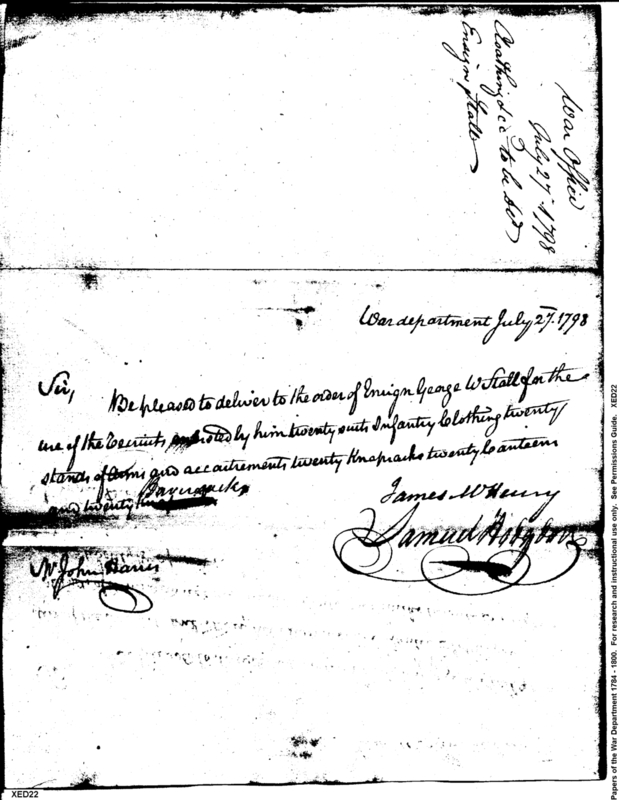 War Office
July 27th 1798
Cloathing &c to be Ded
Ensign Stall
War department July 27th. 1798
Sir,
Be pleased to deliver to the order of Ensign George W Stall for the
use of the Recruits enlisted by him twenty suits Infantry Clothing twenty
stands of Arms and accoutrements twenty Knapsacks twenty Canteens
and twenty
James McHenry
Samuel Hodgdon
Mr John Harris
XED22
Papers of the War Department 1784 - 1800. For research and instructional use only. See Permissions Guide. XED22